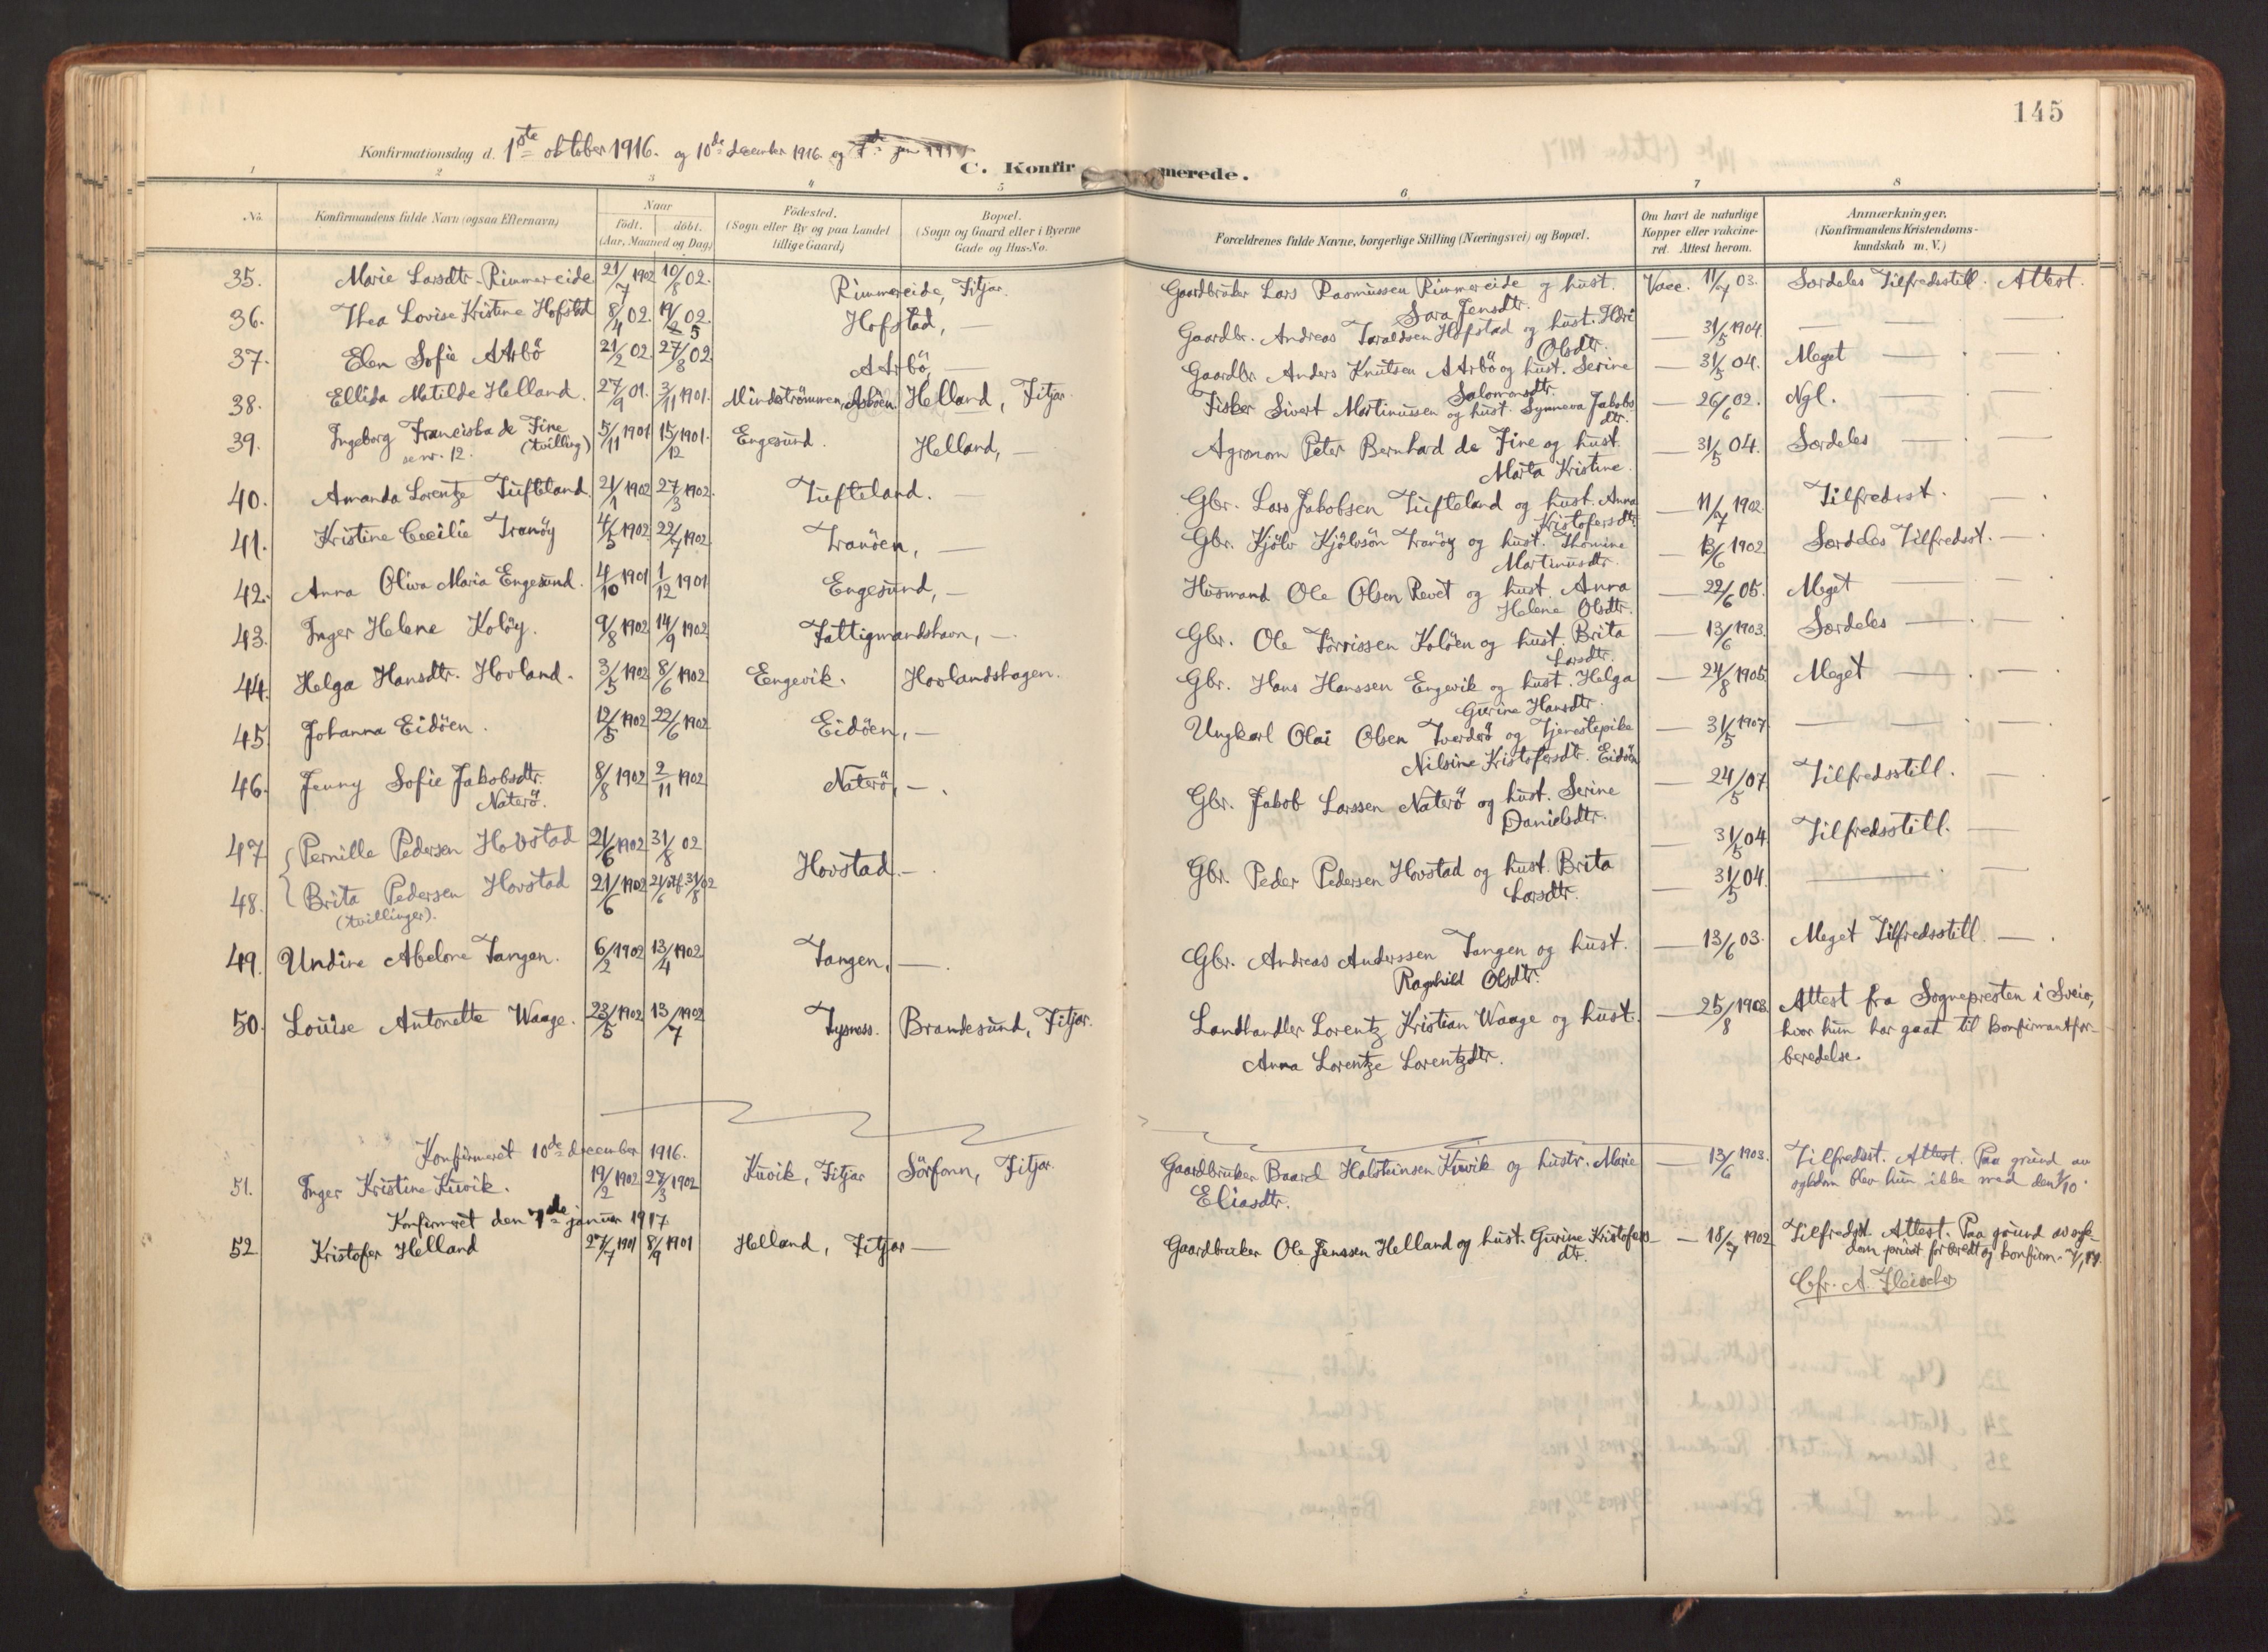 145
Konfirmationsdag d. 1ste oktober 1916. og 10de december 1916 og
C. Konfirmerede.
1 2 3 4 5 6 7 8
No. Konfirmandens fulde Navn (ogsaa Efternavn) Naar födt. döbt. (Aar, Maaned og Dag) Födested. (Sogn eller By og paa Landet tillige Gaard) Bopæl. (Sogn og Gaard eller i Byerne Gade og Hus-No. Forældrenes fulde Navne, borgerlige Stilling (Næringsvei) og Bopæl. Om havt de naturlige Kopper eller vakcineret. Attest herom. Anmærkninger. (Konfirmandens Kristendomskundskab m. V.)
35. Marie Larsdtr. Rimmereide 21/7 1902 10/8 02. Rimmereide, Fitjar. Gaardbruker Lars Rasmussen Rimmereide og hust. Vacc. 11/7 03. Særdeles Tilfredsstill. Attest.
Sara Jensdtr.
36. Thea Lovise Kristine Hofstad 8/4 02. 19/5 02. Hofstad, — Gaardbr. Andreas Taraldsen Hofstad og hust. — 31/5 1904. — — —
Olsdtr.
37. Elen Sofie AArbö 21/2 02. 27/8 02. AArbö, — Gaardbr. Anders Knutsen AArbö og hust. Serine — 31/5 04. Meget — . —
Salomonsdtr.
38. Ellida Matilde Helland. 27/9 01. 3/11 1901. Mindströmmen, Helland, Fitjar. Fisker Sivert Martinussen og hust. Synneva Jakobs — 26/6 02. Ngl. — —
dtr.
39. Ingeborg Franciska de Fine 5/11 1901 15/12 1901. Engesund. Helland, — Agronom Peter Bernhard de Fine og hust. — 31/5 04. Særdeles — . —
se nr. 12. (tvilling) Marta Kristine.
40. Amanda Lorentze Tufteland. 21/1 1902 27/3 1902. Tufteland. — Gbr. Lars Jakobsen Tufteland og hust. Anna — 11/7 1902. Tilfredsst. — .
Kristofersdtr.
41. Kristine Cecilie Tranöy 4/5 1902 22/7 1902. Tranöen, — Gbr. Kjölv Kjölvsön Tranöy og hust. Thomine — 13/6 1902 Særdeles Tilfredsst. — .
Martinusdtr.
42. Anna Oliva Maria Engesund. 4/10 1901 1/12 1901 Engesund, — Husmand Ole Olsen Revet og hust. Anna — 22/6 05. Meget — —
Helene Olsdtr.
43. Inger Helene Kolöy. 9/8 1902 14/9 1902 Fattigmandshavn, — Gbr. Ole Törrissen Kolöen og hust. Brita — 13/6 1903. Særdeles — . — .
Larsdtr.
44. Helga Hansdtr. Hovland. 3/5 1902 8/6 1902 Engevik. Hovlandshagen. Gbr. Hans Hanssen Engevik og hust. Helga — 24/8 1905. Meget — . — .
Gurine Hansdtr.
45. Johanna Eidöen. 12/5 1902 22/6 1902 Eidöen, — Ungkarl Olai Olsen Tverderö og Tjenestepike — 31/5 1907. — — . — .
Nilsine Kristofersdtr. Eidöen
46. Jenny Sofie Jakobsdtr. 8/8 1902 2/11 1902 Naterö, — . Gbr. Jakob Larssen Naterö og hust. Serine — 24/5 07. Tilfredsstill. —
Naterö. Danielsdtr.
47. Pernille Pedersen Hovstad 21/6 1902 31/8 02 — 31/5 04. Tilfredsstill. —
Hovstad — . Gbr. Peder Pedersen Hovstad og hust. Brita
48. Brita Pedersen Hovstad 21/6 1902 21/6 stf. 31/8 02 Larsdtr. — 31/5 04. — . —
(tvillinger).
49. Undine Abelone Tangen. 6/2 1902 13/4 1902 Tangen, — . Gbr. Andreas Anderssen Tangen og hust. — 13/6 03. Meget Tilfredsstill. — .
Ragnhild Olsdtr.
50. Louise Antonette Waage. 23/5 1902 13/7 1902 Tysnes. Brandesund, Fitjar. Landhandler Lorentz Kristian Waage og hust. — 25/8 1903 Attest fra Sognepresten i Sveio,
Anna Lorentze Lorentzdtr. hvor hun har gaat til konfirmantfor-
beredelse.
Konfirmeret 10de december 1916.
51. Inger Kristine Kuvik. 19/2 1902 27/3 1902 Kuvik, Fitjar Sörfonn, Fitjar. Gaardbruker Baard Halsteinsen Kuvik og hustr. Marie — 13/6 1903. Tilfredsst. Attest. Paa grund av
Eliasdtr. sygdom blev hun ikke med den 1/10.
Konfirmeret den 7de januar 1917
52 Kristofer Helland 27/7 1901 8/9 1901 Helland, Fitjar — Gaardbruker Ole Jenssen Helland og hust. Gurine Kristofers — 18/7 1902 Tilfredsst. Attest. Paa grund av syk-
dtr. dom privat forberedt og konfirm. 7/1 17.
Cfr. A. Fleischer